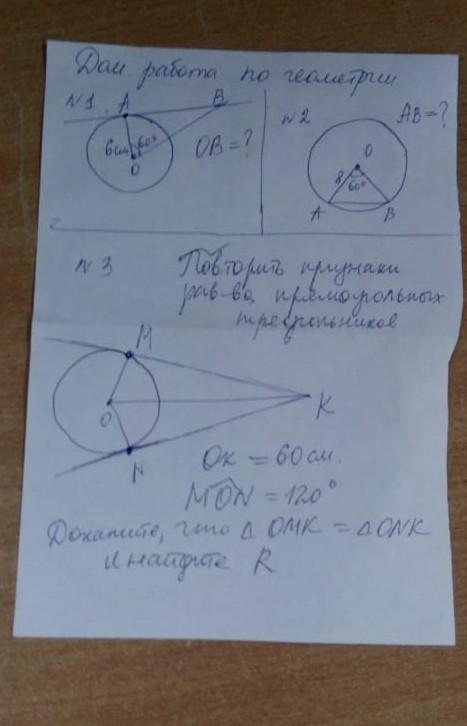 Дом работа по геометрии
N1. A B
6см 60° OB = ?
O
N2 AB = ?
O
8 60°
A B
N3 Повторить признаки
рав-ва прямоугольных
треугольников
M
O K
N
OK = 60 см.
MON = 120°
Докажите, что △ OMK = △ ONK
и найдите R